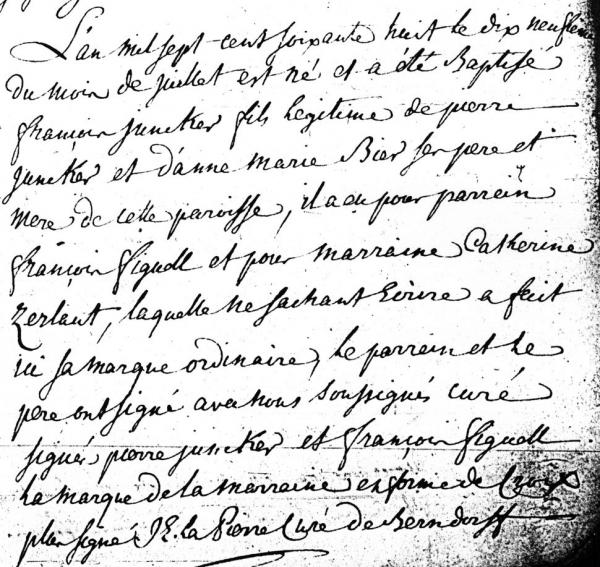 L'an mil sept-cent soixante huit le dix neufieme
du moin de juillet est né et a été Baptisé
françoin juncker fils legitime de pierre
juncker et d'anne marie Bier ses pere et
mere de cette paroisse, il a eu pour parrein
françoin figuell et pour marraine Catherine
Zerlaut, laquelle ne sachant Ecrire a fait
ici sa marque ordinaire, le parrein et le
pere ont signé avec nous soussignés curé
signés pierre juncker et françoin figuell
La marque de la marraine en forme de Croix
plus signé J E. la Pierre Curé de Berndorff